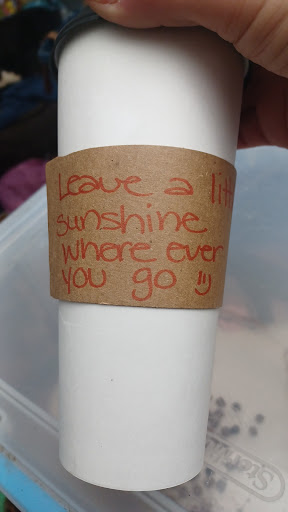 Leave a litt
sunshine
where ever
you go =)
Steril